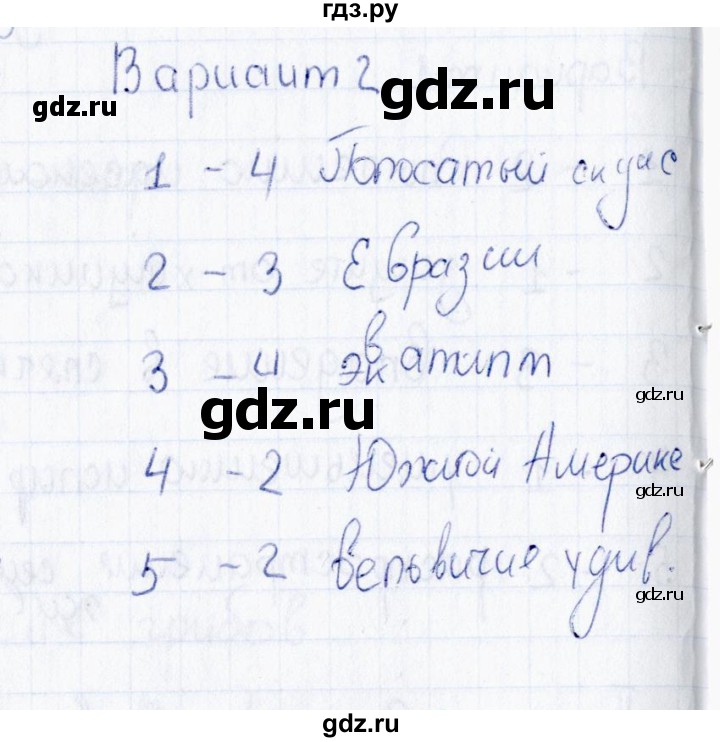 гдз.ру
Вариант 2
gdz.ru
gdz.ru
1 - 4 Полосатый скунс
2 - 3 Евразии
gdz.ru
3 - 4 экватипт
gdz.ru
gdz.ru
4 - 2 Южной Америке
gdz.ru
5 - 2 вельвичия удив.
gdz.ru
gdz.ru
gdz.ru